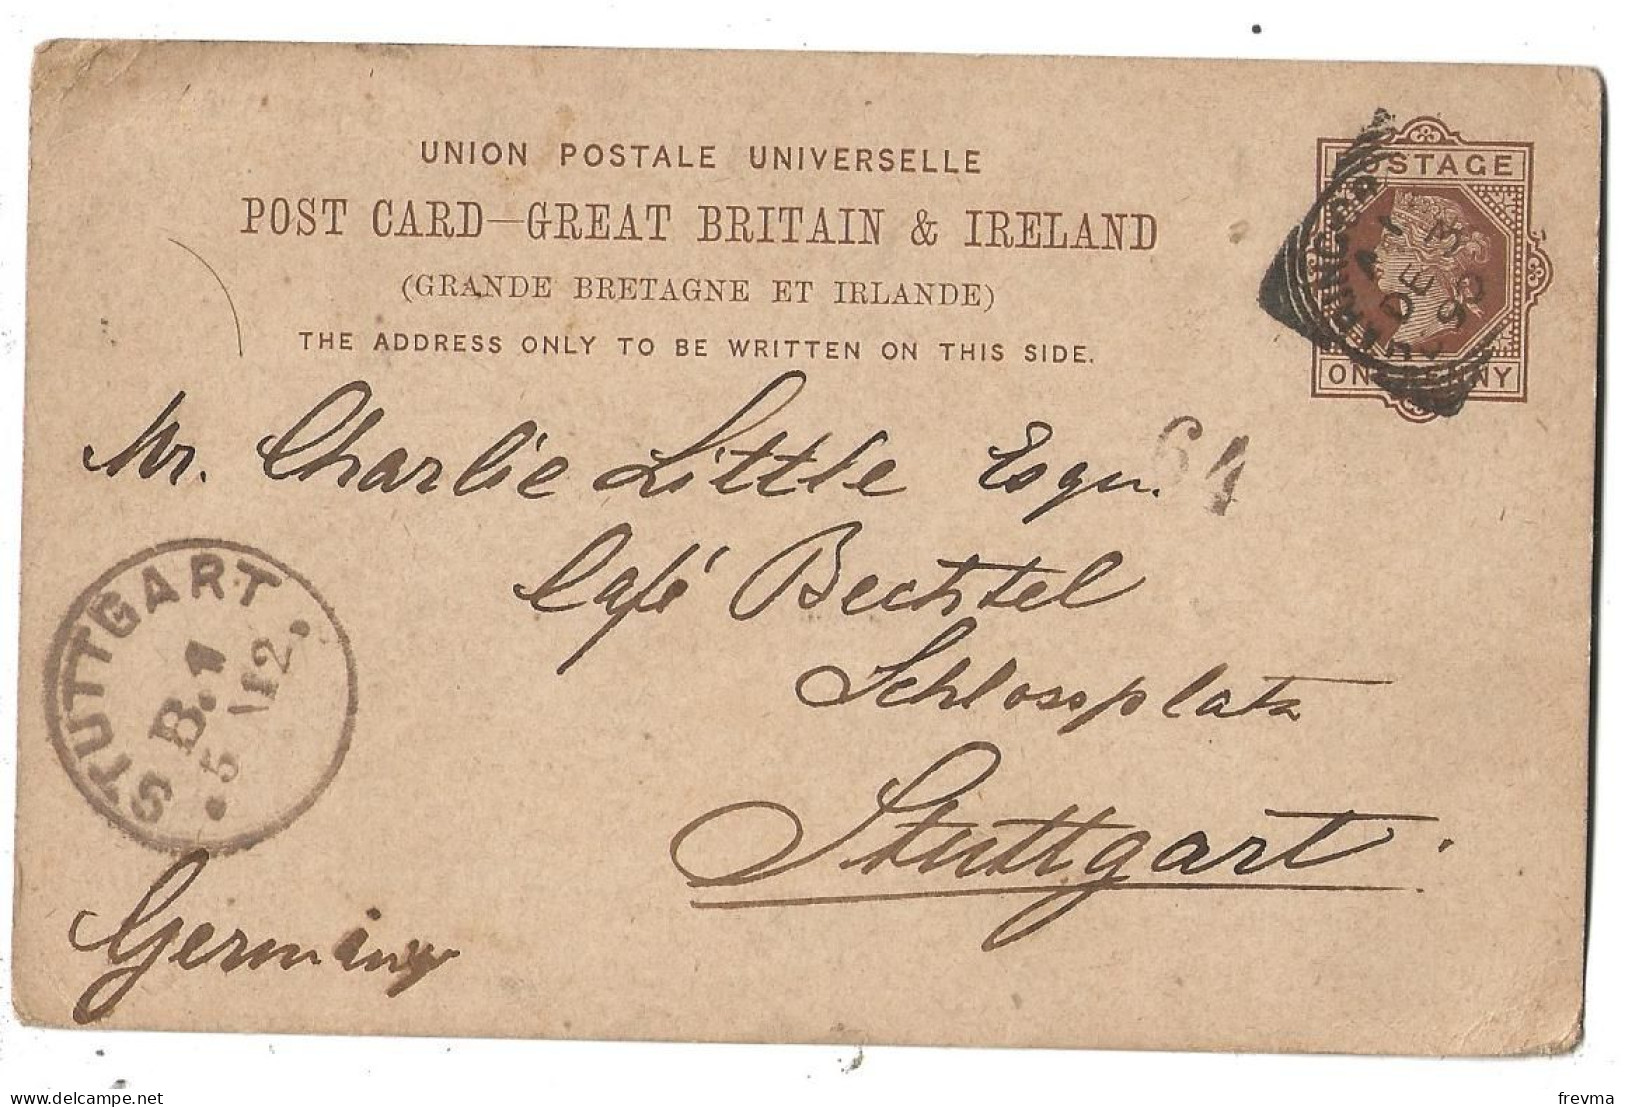 UNION POSTALE UNIVERSELLE
POST CARD—GREAT BRITAIN & IRELAND
(GRANDE BRETAGNE ET IRLANDE)
THE ADDRESS ONLY TO BE WRITTEN ON THIS SIDE.
POSTAGE
ONE PENNY
DE 3
90
Mr. Charlie Little Esqu.
64
Café Bechtel
Schlossplatz
Stuttgart.
Germany
STUTTGART.
B.1
5 12
delcampe.net
frevma